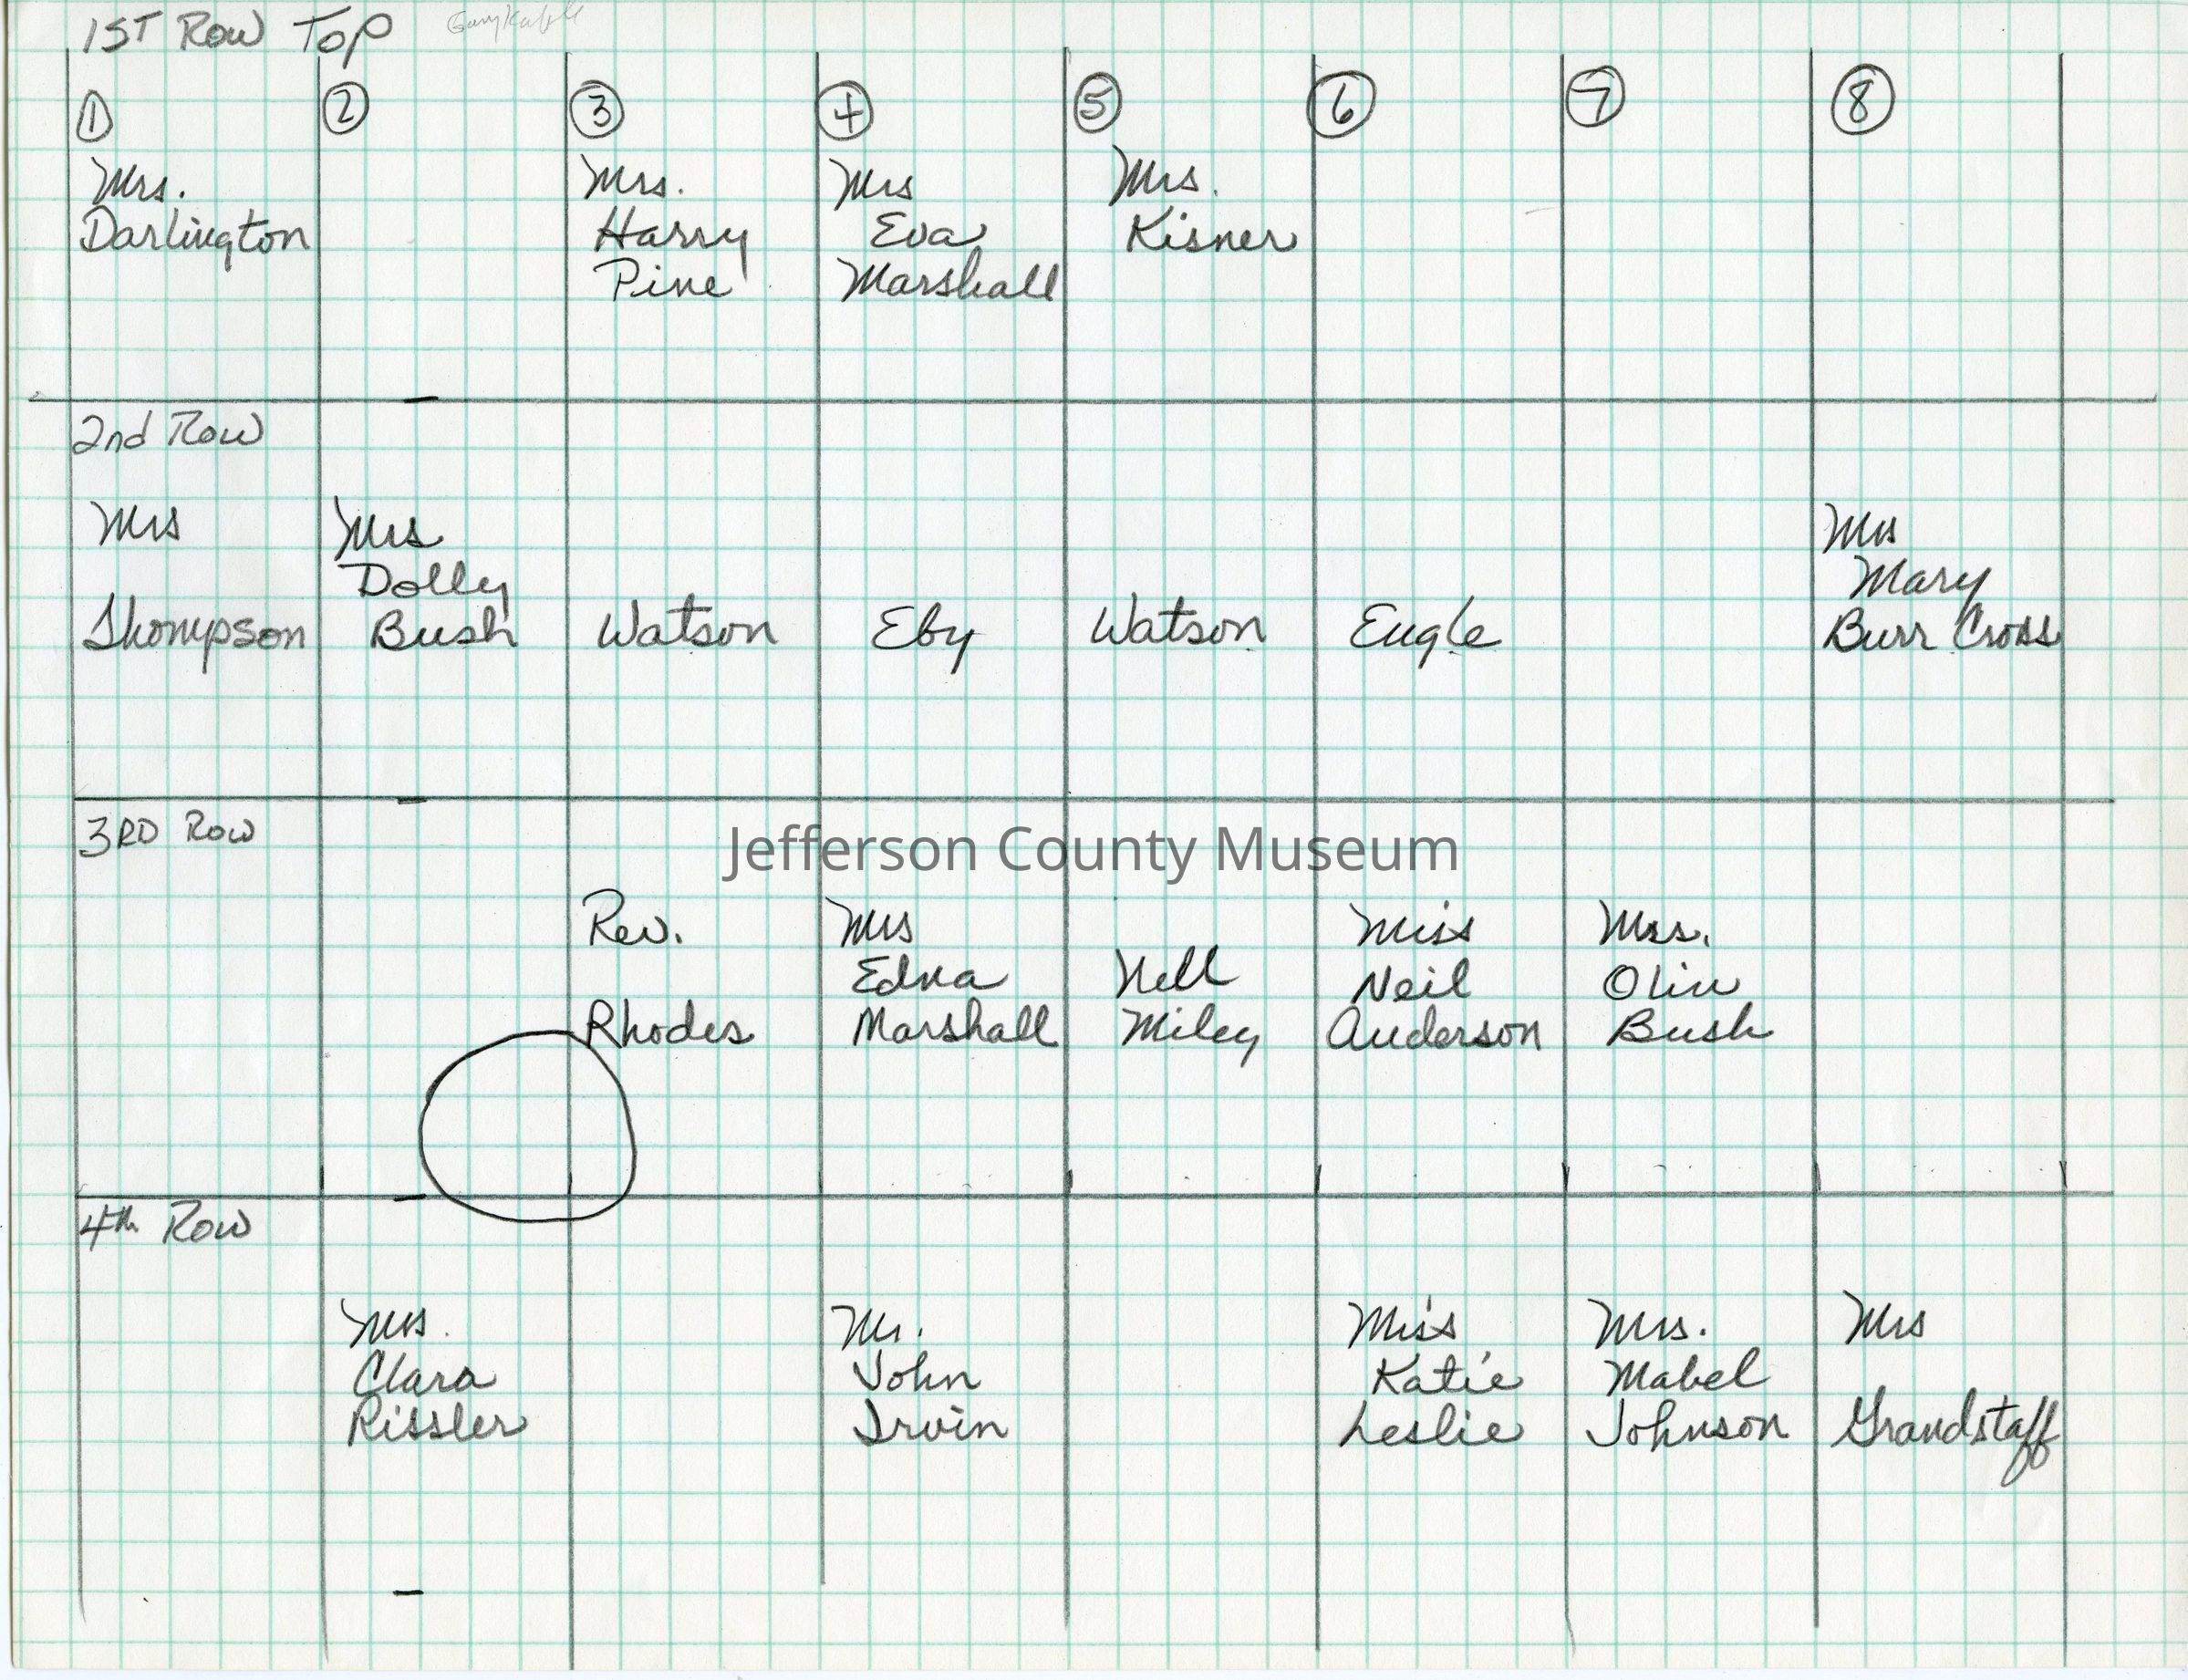 1ST ROW TOP
1 2 3 4 5 6 7 8
Mrs.
Darlington
Mrs.
Harry
Pine
Mrs
Eva
Marshall
Mrs.
Kisner
2nd Row
Mrs
Thompson
Mrs
Dolly
Bush
Watson
Eby
Watson
Engle
Mrs
Mary
Burr Cross
3RD ROW
Jefferson County Museum
Rev.
Rhodes
Mrs
Edna
Marshall
Nell
Miley
Miss
Neil
Anderson
Mrs.
Olin
Bush
4th Row
Mrs.
Clara
Rissler
Mr.
John
Irvin
Miss
Katie
Leslie
Mrs.
Mabel
Johnson
Mrs
Grandstaff